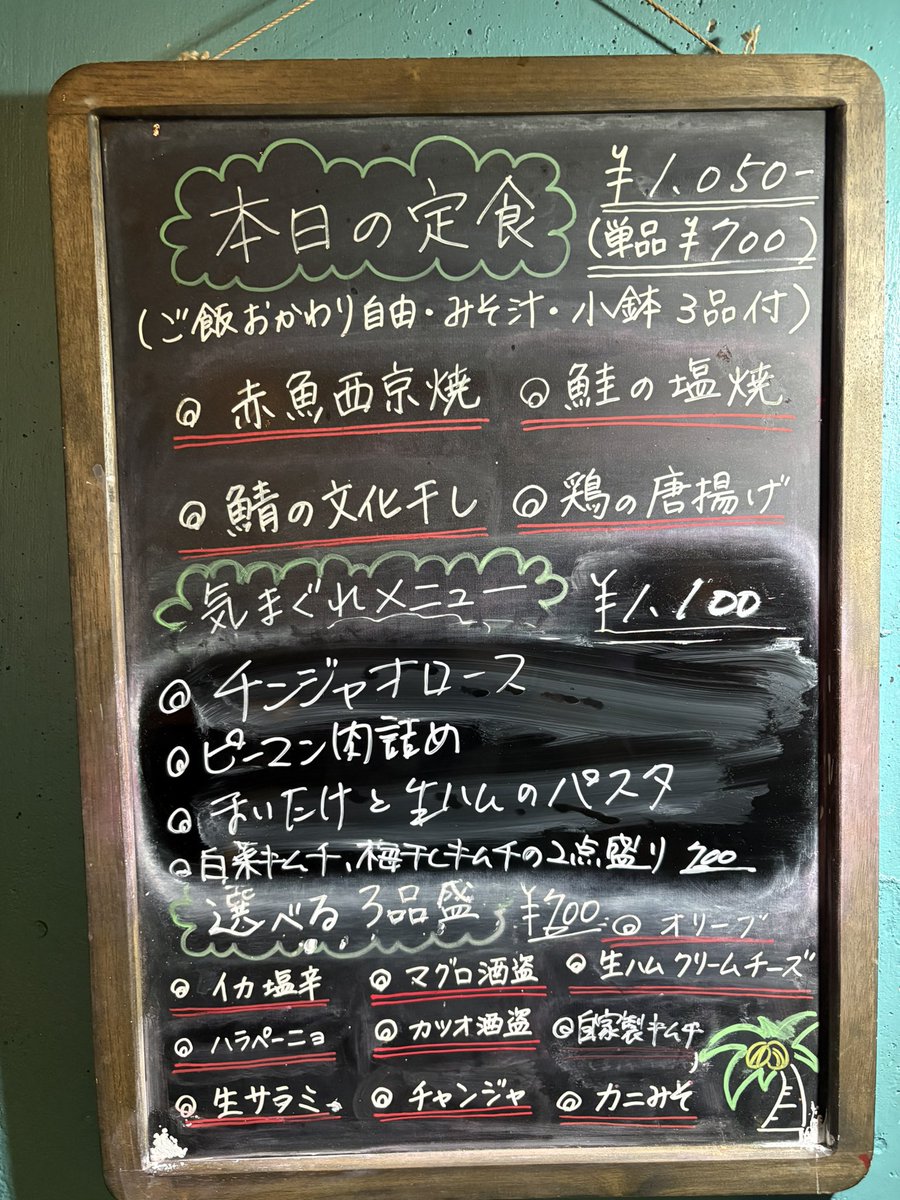 本日の定食 ¥1,050-
(単品¥700)
(ご飯おかわり自由・みそ汁・小鉢3品付)
◎ 赤魚西京焼 ◎ 鮭の塩焼
◎ 鯖の文化干し ◎ 鶏の唐揚げ
気まぐれメニュー ¥1,100
◎ チンジャオロース
◎ ピーマン肉詰め
◎ まいたけと生ハムのパスタ
◎ 白菜キムチ、梅干しキムチの2点盛り 700
選べる3品盛 ¥700 ◎ オリーブ
◎ イカ塩辛 ◎ マグロ酒盗 ◎ 生ハムクリームチーズ
◎ ハラペーニョ ◎ カツオ酒盗 ◎ 自家製キムチ
◎ 生サラミ ◎ チャンジャ ◎ カニみそ